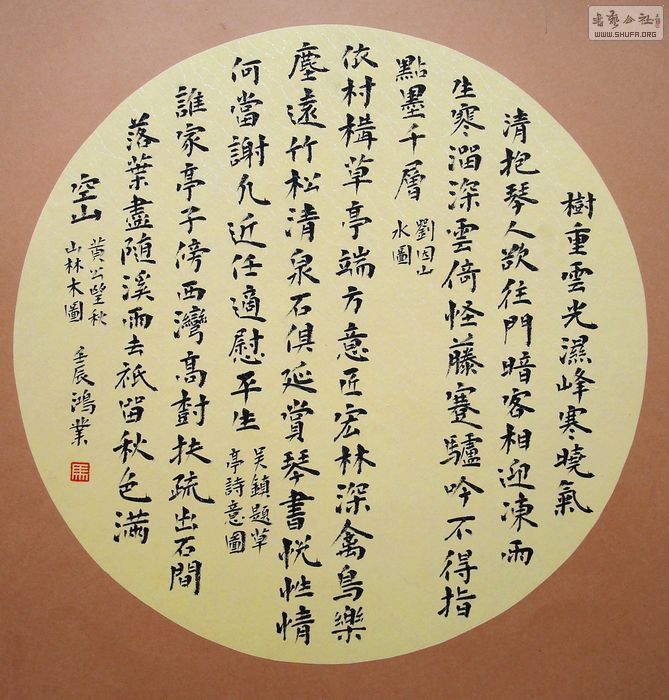 樹重雲光濕峰寒曉氣
清抱琴人欲往門暗客相迎凍雨
生寒澗深雲倚怪藤蹇驢吟不得指
點墨千層
劉因山
水圖
依村構草亭端方意匠宏林深禽鳥樂
塵遠竹松清泉石俱延賞琴書悦性情
何當謝凡近任適慰平生
吴鎮題草
亭詩意圖
誰家亭子傍西灣高樹扶疏出石間
落葉盡随溪雨去祇留秋色滿
空山
黄公望秋
山林木圖
壬辰鴻業
馬
書藝公社
WWW.SHUFA.ORG